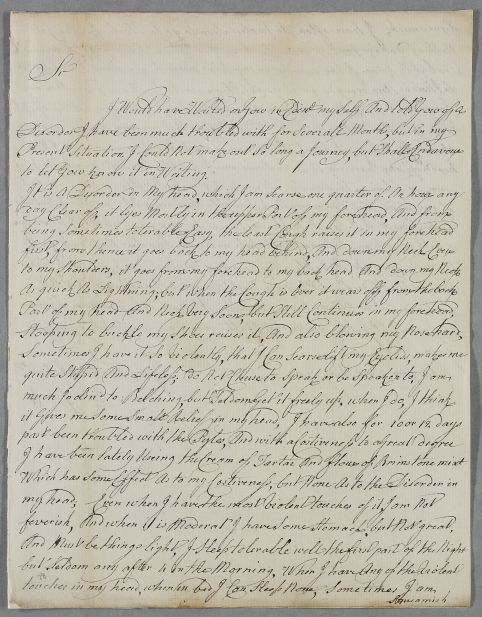 Sr
I Would have Waited on You in Edinr my Self And told You of a
Disorder I have been much troubled with for Severall Months, but in my
Present Situation I Could Not make out So long a Journey, but Shall Endavour
to let You know it in Writing.
It is A Disorder in My head, which I am Scarse one quarter of An hour any
day Clear of, it Lyes Mostly in the upper Part of my forehead, And from
being Sometimes tolerable Easy the least Cough raises it in my forehead
first, from thence it goes back to my head behind, And down my Neck Even
to my Shoulders, it goes from my forehead to my back head And down my Neck
As quick As Lightning, but when the Cough is over it wears off from the back
Part of my head And Neck Very Soon, but Still Continues in my forehead,
Stooping to buckle my Shoes raises it, And also blowing my Nose hard,
Sometimes I have it So Violently, that I Can Scarse lift my Eyelids, makes me
quite Stupid And Lifeless, do Not Chuse to Speak or be Spoken to, I am
much Inclin'd to Belching but Seldom get it freely up, when I do, I think
it Gives me Some Small Relief in my head, I have also for 10 or 12 days
past been troubled with the Piles, And with a Costiveness to a Great degree
I have been lately Useing the Cream of Tartar And flour of Brimstone mixt
Which has Some Effect As to my Costiveness, but None As to the Disorder in
my head; Even when I have the most Violent touches of it I am Not
feverish, And when it is Moderat I have Some Stomack but Not great,
And Must be things light, I Sleep tolerable well the first part of the Night
but Seldom any after 4 in the Morning, When I have Any of the Violent
touches in my head, when in bed I Can Sleep None, Sometimes I am